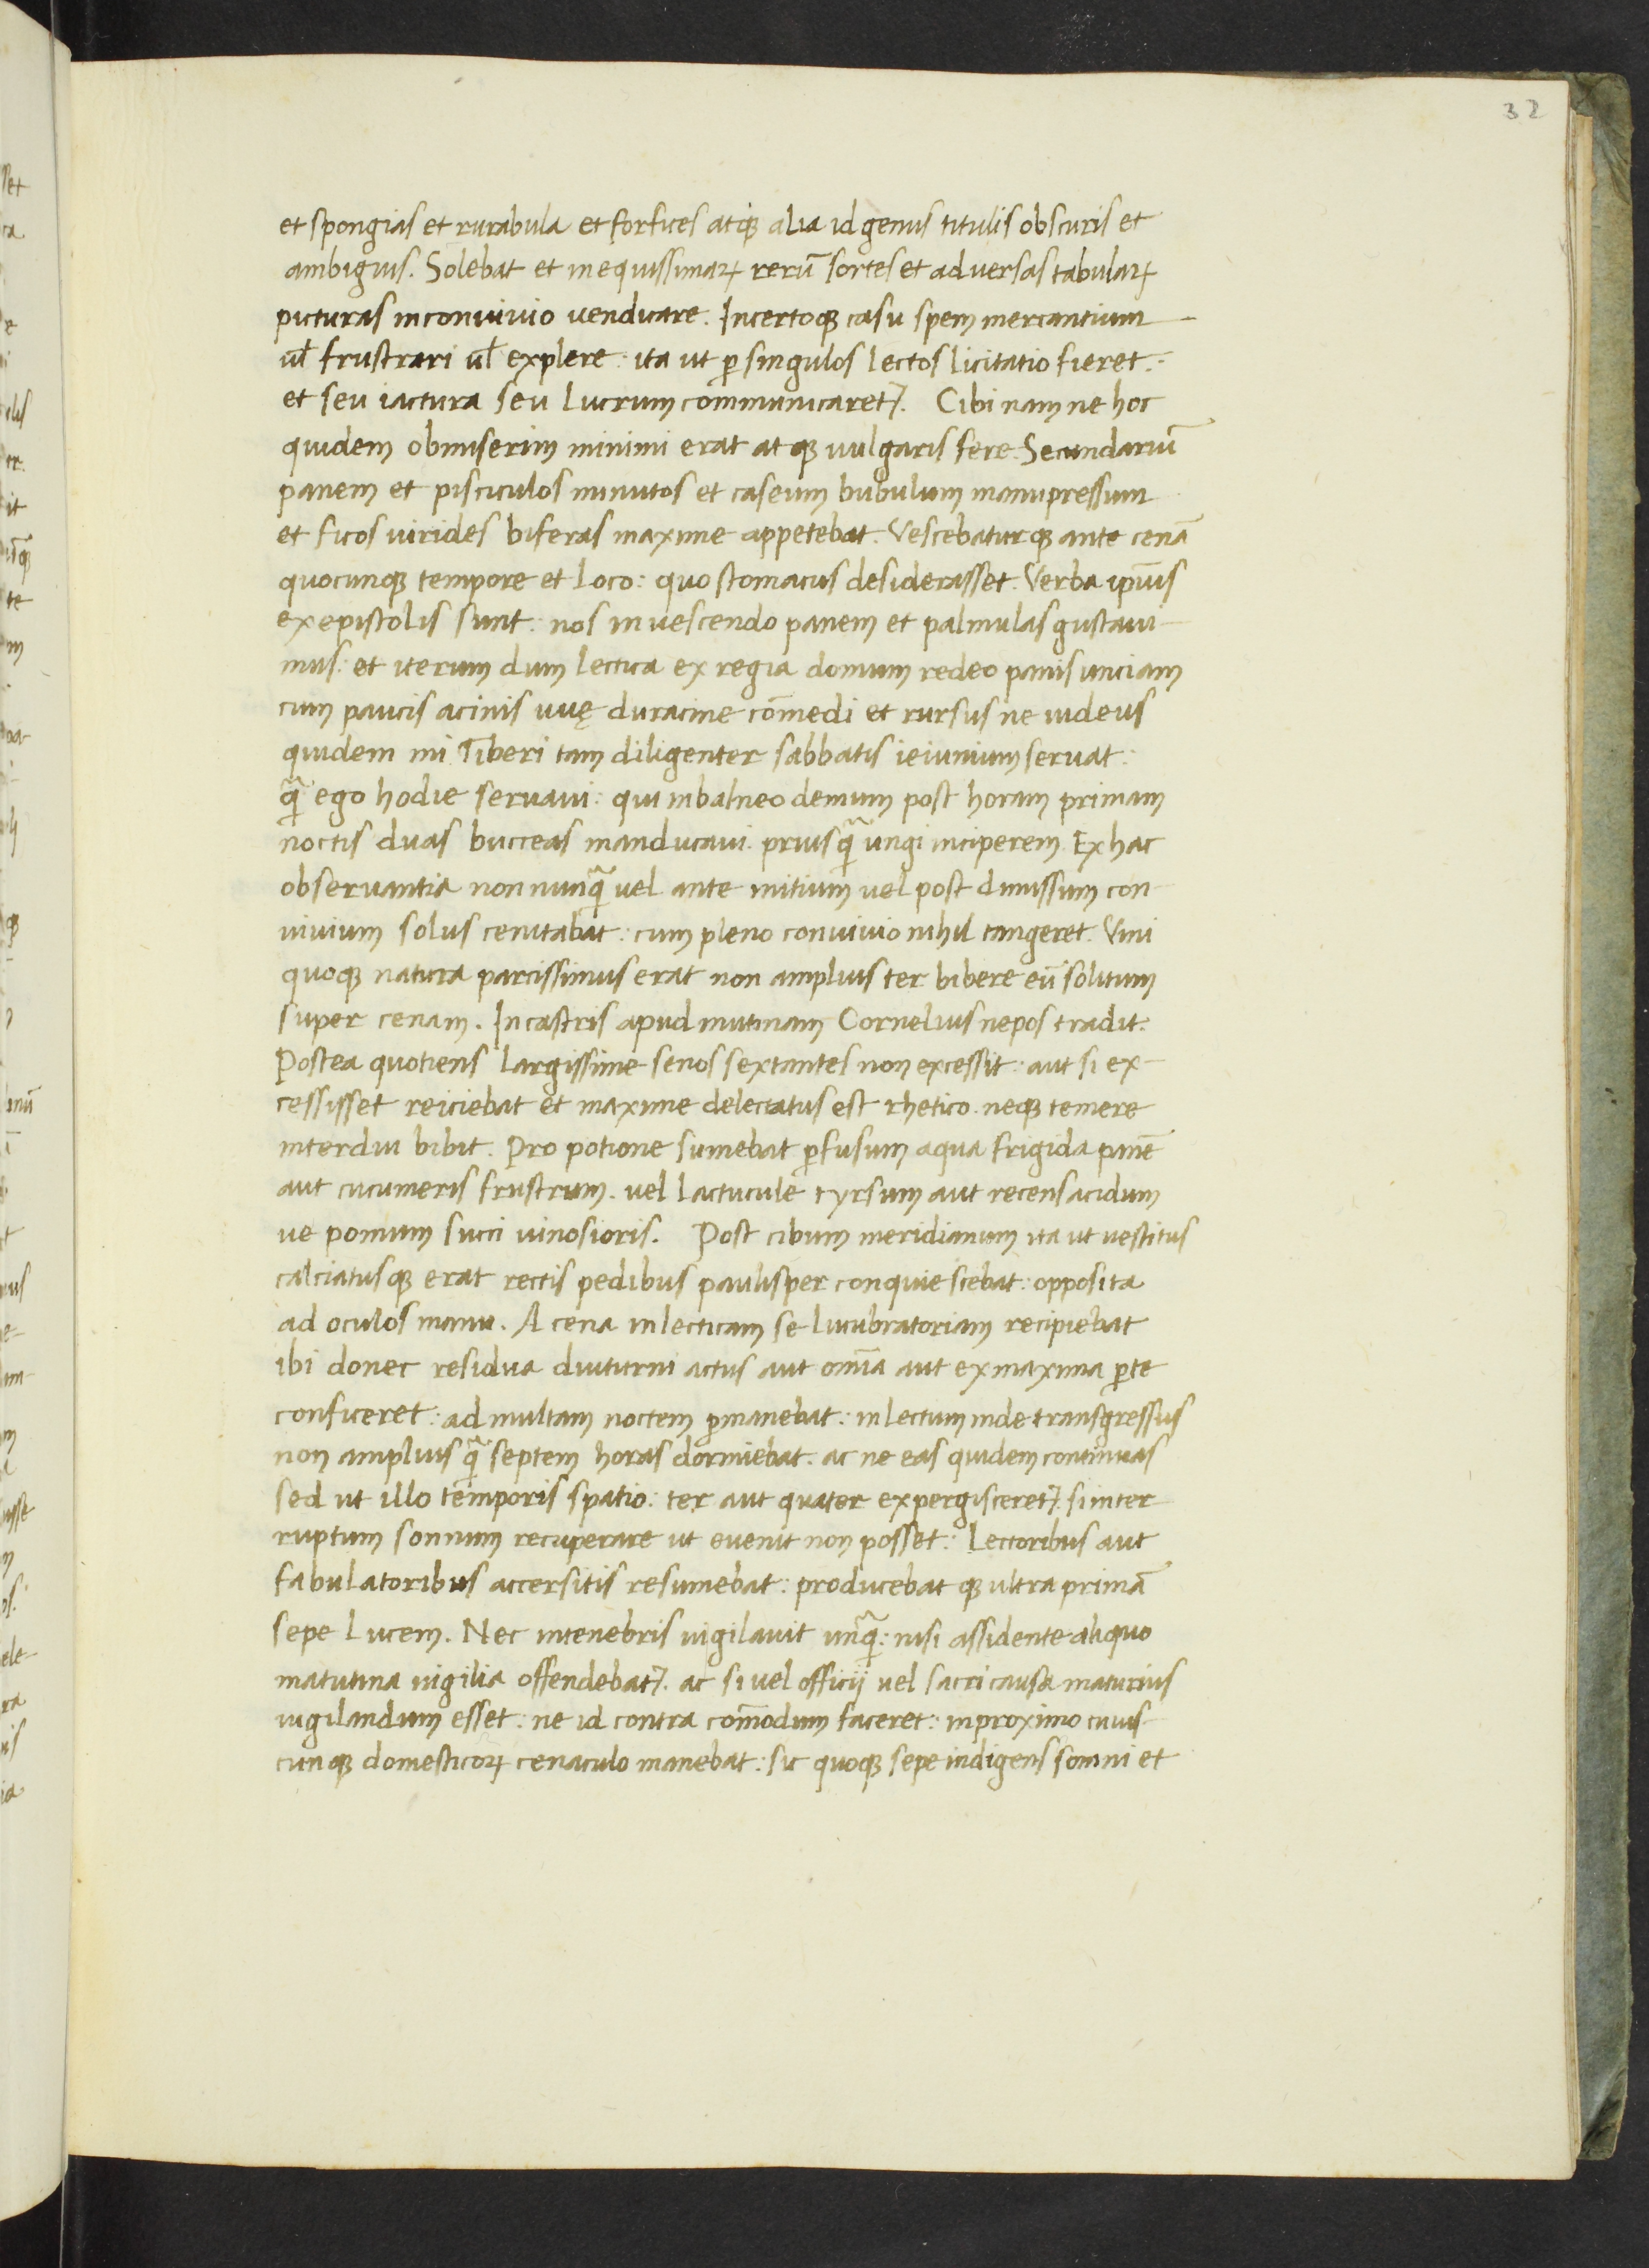 32
et spongias et rurabula et forfices atq; alia id genus titulis obscuris et
ambiguis. Solebat et inequissimaꝝ rerū sortes et adversas tabulaꝝ
picturas in convivio venditare. Incertoq; casu spem mercantium
ul̄ frustrari ul̄ explere: ita ut ꝑ singulos lectos licitatio fieret:
et seu iactura seu lucrum communicaret᷑. Cibi nam ne hoc
quidem obmiserim minimi erat atq; vulgaris fere. Secundariū
panem et pisciculos minutos et caseum bubulum manupressum
et ficos virides biferas maxime appetebat. Vescebaturq; ante cenā
quocunq; tempore et loco: quo stomacus desiderasset. Verba ip̄ius
ex epistolis sunt: nos in vescendo panem et palmulas gustavi-
mus: et iterum dum lectica ex regia domum redeo panis unciam
cum paucis acinis uvę duracine cōmedi et rursus ne iudeus
quidem mi Tiberi tam diligenter sabbatis ieiunium servat:
q̄ ego hodie servavi: qui in balneo demum post horam primam
noctis duas bucceas manducavi. priusq̄ ungi inciperem. Ex hac
observantia non nunq̄ vel ante initium vel post dimissum con-
vivium solus cenitabat: cum pleno convivio nihil tangeret. Vini
quoq; natura parcissimus erat non amplius ter bibere eū solitum
super cenam. In castris apud mutinam Cornelius nepos tradit:
Postea quotiens largissime senos sextantes non excessit: aut si ex-
cessisset reiciebat et maxime delectatus est rhetico. neq; temere
interdiu bibit. Pro potione sumebat ꝑfusum aqua frigida panē
aut cucumeris frustrum. vel lactucule tyrsum aut recens acidum
ve pomum succi vinosioris. Post cibum meridianum ita ut vestitus
calciatusq; erat rectis pedibus paulisper conquiescebat: opposita
ad oculos manu. A cena in lecticam se lucubratoriam recipiebat
ibi donec residua diuturni actus aut omīa aut ex maxima ꝑte
conficeret: ad multam noctem ꝑmanebat: in lectum inde transgressus
non amplius q̄ septem horas dormiebat. ac ne eas quidem continuas
sed ut illo temporis spatio: ter aut quater expergisceret᷑. si inter
ruptum somnum recuperare ut evenit non posset: Lectoribus aut
fabulatoribus accersitis resumebat: producebatq; ultra primā
sepe lucem. Nec in tenebris vigilavit unq̄: nisi assidente aliquo
matutina vigilia offendebat᷑. ac si vel officij vel sacri causa maturius
vigilandum esset: ne id contra cōmodum faceret: in proximo cuius-
cunq; domesticoꝝ cenaculo manebat: sic quoq; sepe indigens somni et